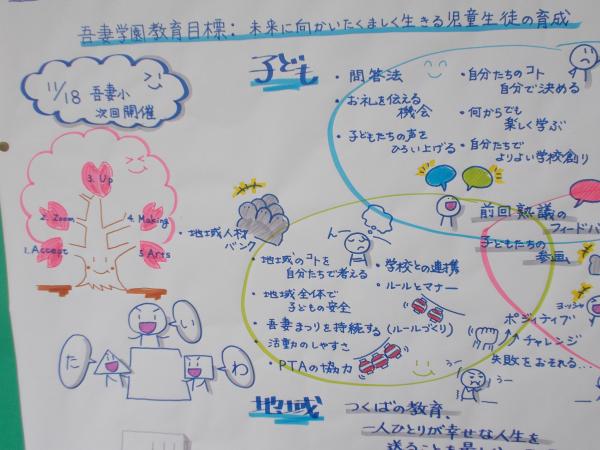 吾妻学園教育目標：未来に向かいたくましく生きる児童生徒の育成
11/18 吾妻小
次回開催
子ども
・問答法
・お礼を伝える
機会
・子どもたちの声を
ひろい上げる
・自分たちのコト
自分で決める
・何からでも
楽しく学ぶ
・自分たちで
よりよい学校創り
3. Up
2. Zoom
4. Making
1. Accept
5 Arts
・地域人材
バンク
前回熟議の
フィードバ
子どもたちの
参画
ん〜
・地域のコトを
自分たちで考える
・地域全体で
子どもの安全
・吾妻まつりを持続する
・活動のしやすさ
・PTAの協力
・学校との連携
・ルールとマナー
(ルールづくり)
ヨッシャ
ポジティブ
チャレンジ
失敗をおそれる...
うー
うー
い
た
わ
地域
つくばの教育、
一人ひとりが幸せな人生を